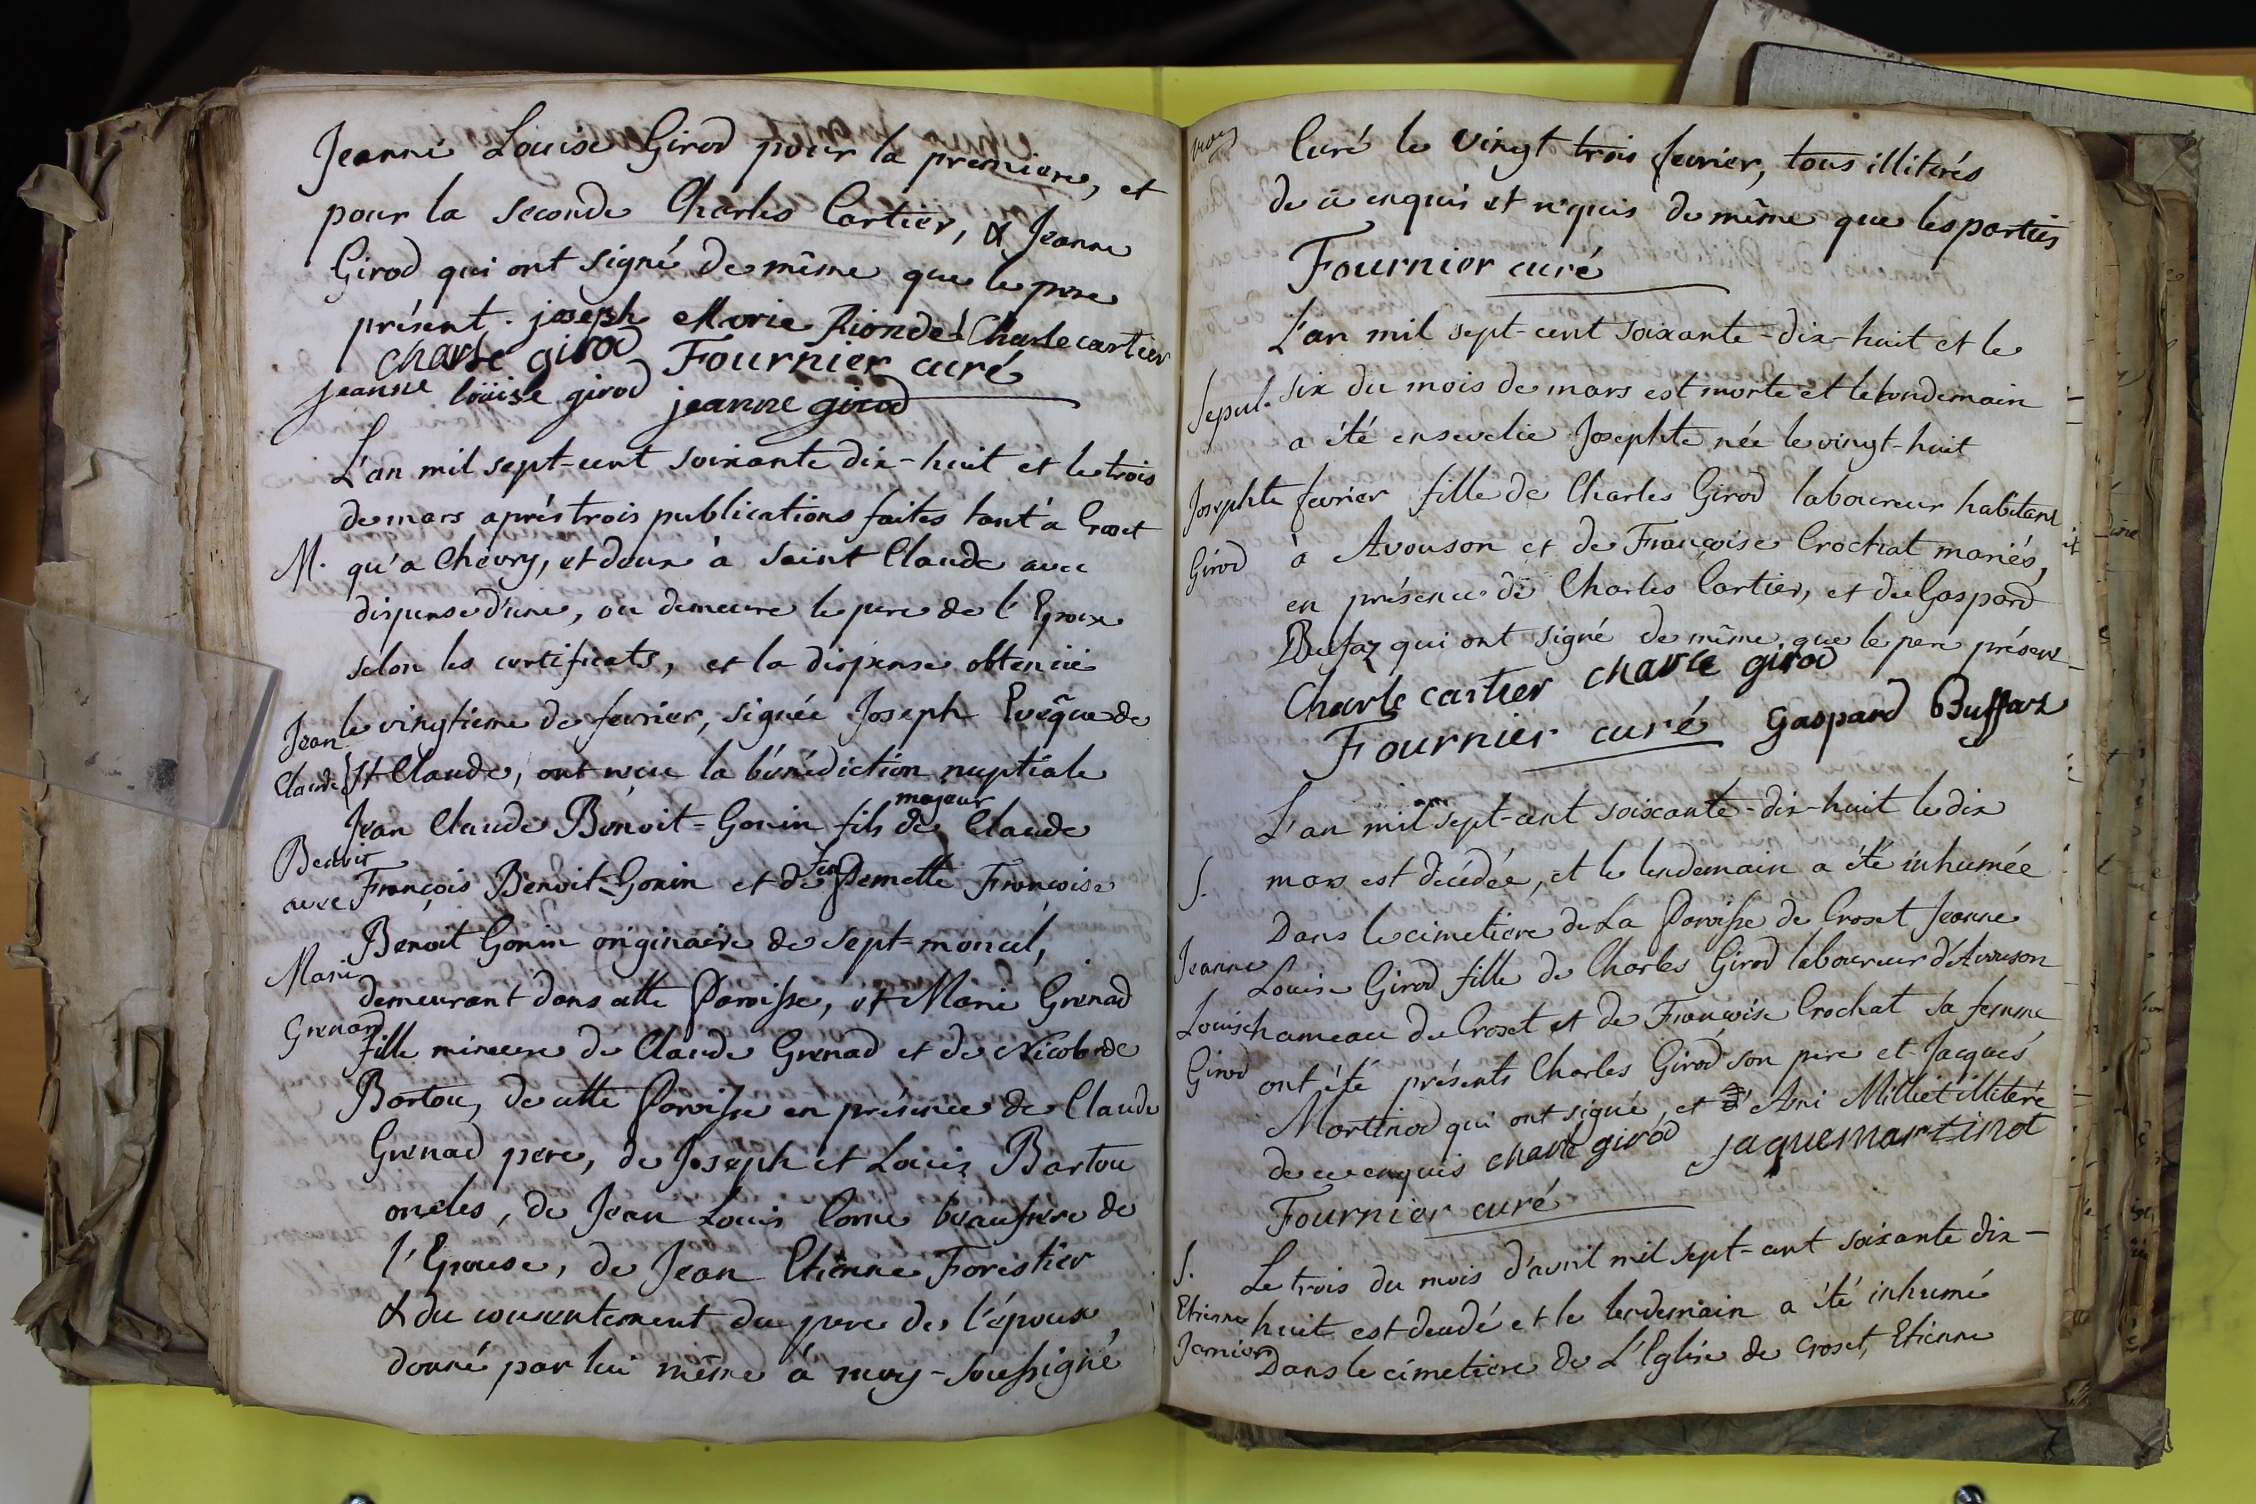 Jeanne Louise Girod pour la premiere, et
pour la seconde Charles Cartier, & Jeanne
Girod qui ont signé de même que le pere
présent. joseph Marie Riondel Charle cartier
charle girod Fournier curé
jeanne loüise girod jeanne girod
L'an mil sept-cent soixante dix-huit et le trois
de mars aprés trois publications faites tant a Croset
M. qu'a Chevry, et deux à Saint Claude avec
dispense d'une, ou demeure le pere de l'Epoux
selon les certificats, et la dispense obtenüe
le vingtieme de fevrier, signée Joseph Evêque de
Jean
Claude St Claude, ont reçu la bénédiction nuptiale
majeur
Jean Claude Benoit=Gonin fils de Claude
Benoit
feu
avec François Benoit-Gonin et de Pernette Françoise
Benoit Gonin originaire de Sept-moncel,
Marie
demeurant dans cette Paroisse, et Marie Grenad
Grenard
fille mineure de Claude Grenad et de Nicolarde
Bartou, de cette Paroisse en présence de Claude
Grenad pere, de Joseph et Louis Bartou
oncles, de Jean Louis Corne beaufrere de
l'Epouse, de Jean Etienne Forestier
& du consentement du pere de l'époux,
donné par lui même à moy-soussigné
Curé le vingt trois fevrier, tous illiterés
de ce enquis et requis de même que les parties
Fournier curé
L'an mil sept-cent soixante-dix-huit et le
Sepul. six du mois de mars est morte et le lendemain
a été ensevelie Josephte née le vingt-huit
Josephte fevrier fille de Charles Girod laboureur habitant
Girod à Avouson et de Françoise Crochat mariés,
en présence de Charles Cartier, et de Gaspard
Bufaz qui ont signé de même que le pere présent
Charle cartier charle girod
Fournier curé Gaspard Buffaz
L'an mil sept-cent soixante-dix-huit le dix
S. mars est décédée, et le lendemain a été inhumée
Dans le cimetiere de La Paroisse de Croset Jeanne
Jeanne Louise Girod fille de Charles Girod laboureur d'Avouson
Louise hameau de Croset et de Françoise Crochat sa femme
Girod ont été présents Charles Girod son pere et Jacques
Martinod qui ont signé, et Ami Milliet illiteré
de ce enquis charle girod jaque martinot
Fournier curé
S. Le trois du mois d'avril mil sept-cent soixante dix-
Etienne huit est decedé et le lendemain a été inhumé
Jarnier Dans le cimetiere de L'Eglise de Croset, Etienne